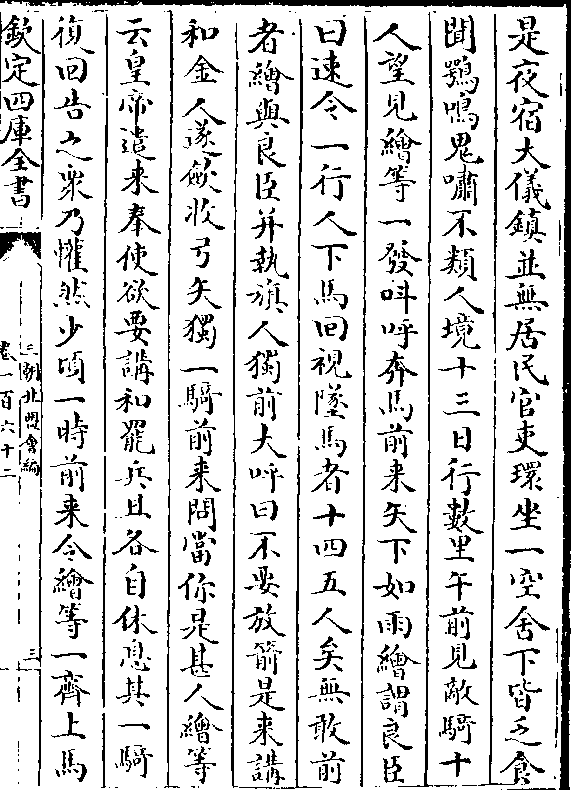 是夜宿大儀鎮並無居民官吏環坐一空舍下皆乏食
聞鴞鳴鬼嘯不類人境十三日行數里午前見敵騎十
人望見繪等一發呌呼奔馬前来矢下如雨繪謂良臣
曰速令一行人下馬回視墜馬者十四五人矣無敢前
者繪與良臣并執旗人獨前大呼曰不要放箭是来講
和金人遂斂收弓矢獨一騎前来問當你是甚人繪等
云皇帝遣来奉使欲要講和罷兵且各自休息其一騎
復回告之衆乃懽然少頃一時前来令繪等一齊上馬
欽定四庫全書
三朝北盟會編
卷一百六十二
三